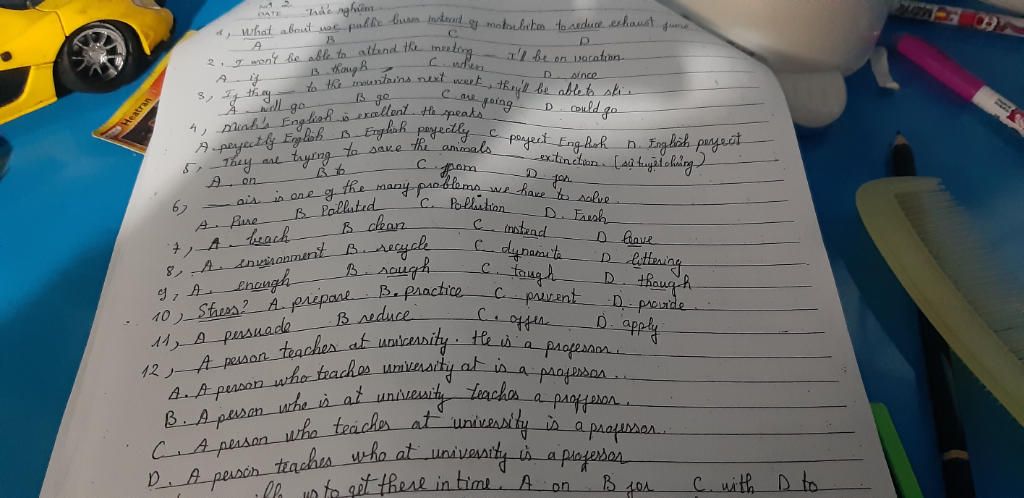 Nº 2
DATE Trắc nghiệm
1, What about use public buses instead of motorbikes to reduce exhaust fume
A B C D
2, I won't be able to attend the meeting I'll be on vacation
A. if B. though C. when D. since
3, If they — to the mountains next week, they'll be able to ski.
A will go B. go C are going D. could go
4, Minh's English is excellent. He speaks
A. perfectly English B. English perfectly C perfect English D. English perfect
5, They are trying to save the animals extinction. (sự tuyệt chủng)
A. on B. to C. from D. for
6, — air is one of the many problems we have to solve.
A. Pure B. Polluted C. Pollution D. Fresh
7, A. beach B. clean C. instead D leave
8, A. environment B. recycle C. dynamite D littering
9, A. enough B. rough C. tough D. though
10, Stress? A. prepare B. practice C prevent D. provide
11, A persuade B reduce C. offer D. apply
12, A person teaches at university. He is a professor.
A. A person who teaches university at is a professor..
B. A person who is at university teaches a proffesor.
C. A person who teaches at university is a professor.
D. A person teaches who at university is a professor
us to get there in time. A on B for C. with D to
Heatran